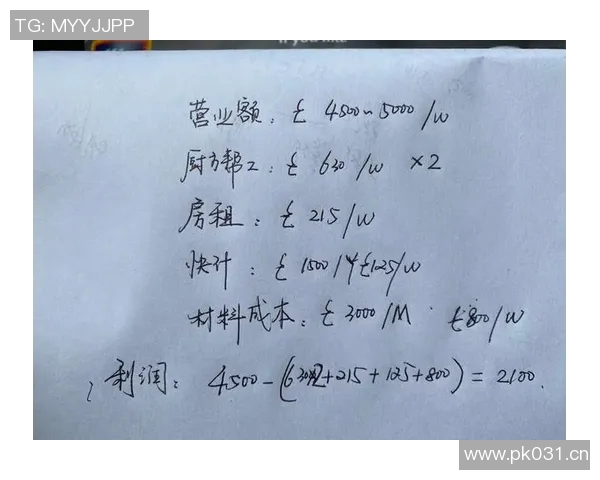 TG: MYYJJPP
if you like
营业额: £ 4500~5000/W
厨方帮工: £ 630/W ×2
房租: £ 215/W
快计: £ 1500/Y £125/W
材料成本: £ 3000/M £800/W
利润: 4500-(630×2+215+125+800)=2100.
www.pk031.cn